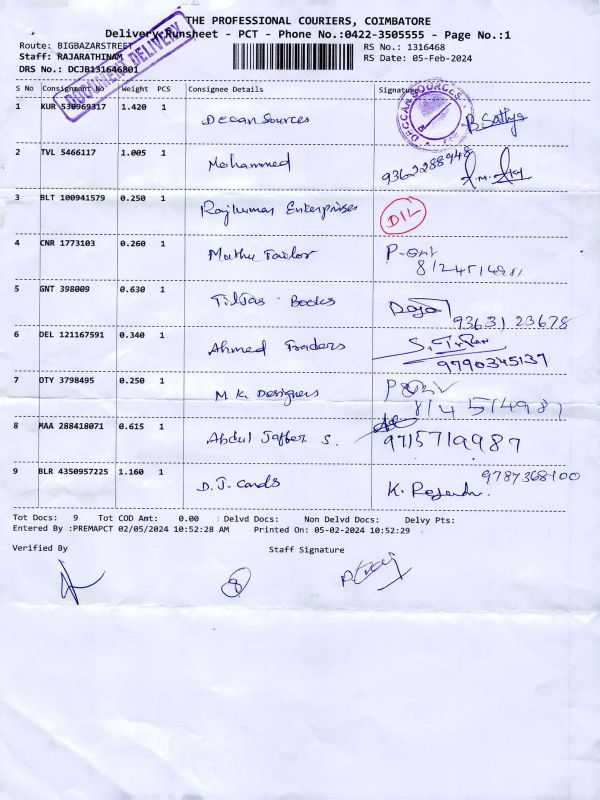 THE PROFESSIONAL COURIERS, COIMBATORE
Delivery Runsheet - PCT - Phone No.:0422-3505555 - Page No.:1
Route: BIGBAZARSTREET RS No.: 1316468
Staff: RAJARATHINAM RS Date: 05-Feb-2024
DRS No.: DCJB131646801
DOCUMENT DELIVERY
S No Consignment No Weight PCS Consignee Details Signature
1 KUR 530969317 1.420 1 Deccan Sources DECCAN SOURCES B. Sathya
2 TVL 5466117 1.005 1 Mohammed 9362288948
3 BLT 100941579 0.250 1 Rajkumar Enterprises DIL
4 CNR 1773103 0.260 1 Muthu Tailor
5 GNT 398009 0.630 1 Books 9363123678
6 DEL 121167591 0.340 1 Ahmed Traders 9790345137
7 OTY 3798495 0.250 1 M K. Designers
8 MAA 288418071 0.615 1 Abdul Jaffer S. 9715719987
9 BLR 4350957225 1.160 1 D. J. Cards K. Rajendr. 9787368100
Tot Docs: 9 Tot COD Amt: 0.00 Delvd Docs: Non Delvd Docs: Delvy Pts:
Entered By :PREMAPCT 02/05/2024 10:52:28 AM Printed On: 05-02-2024 10:52:29
Verified By Staff Signature